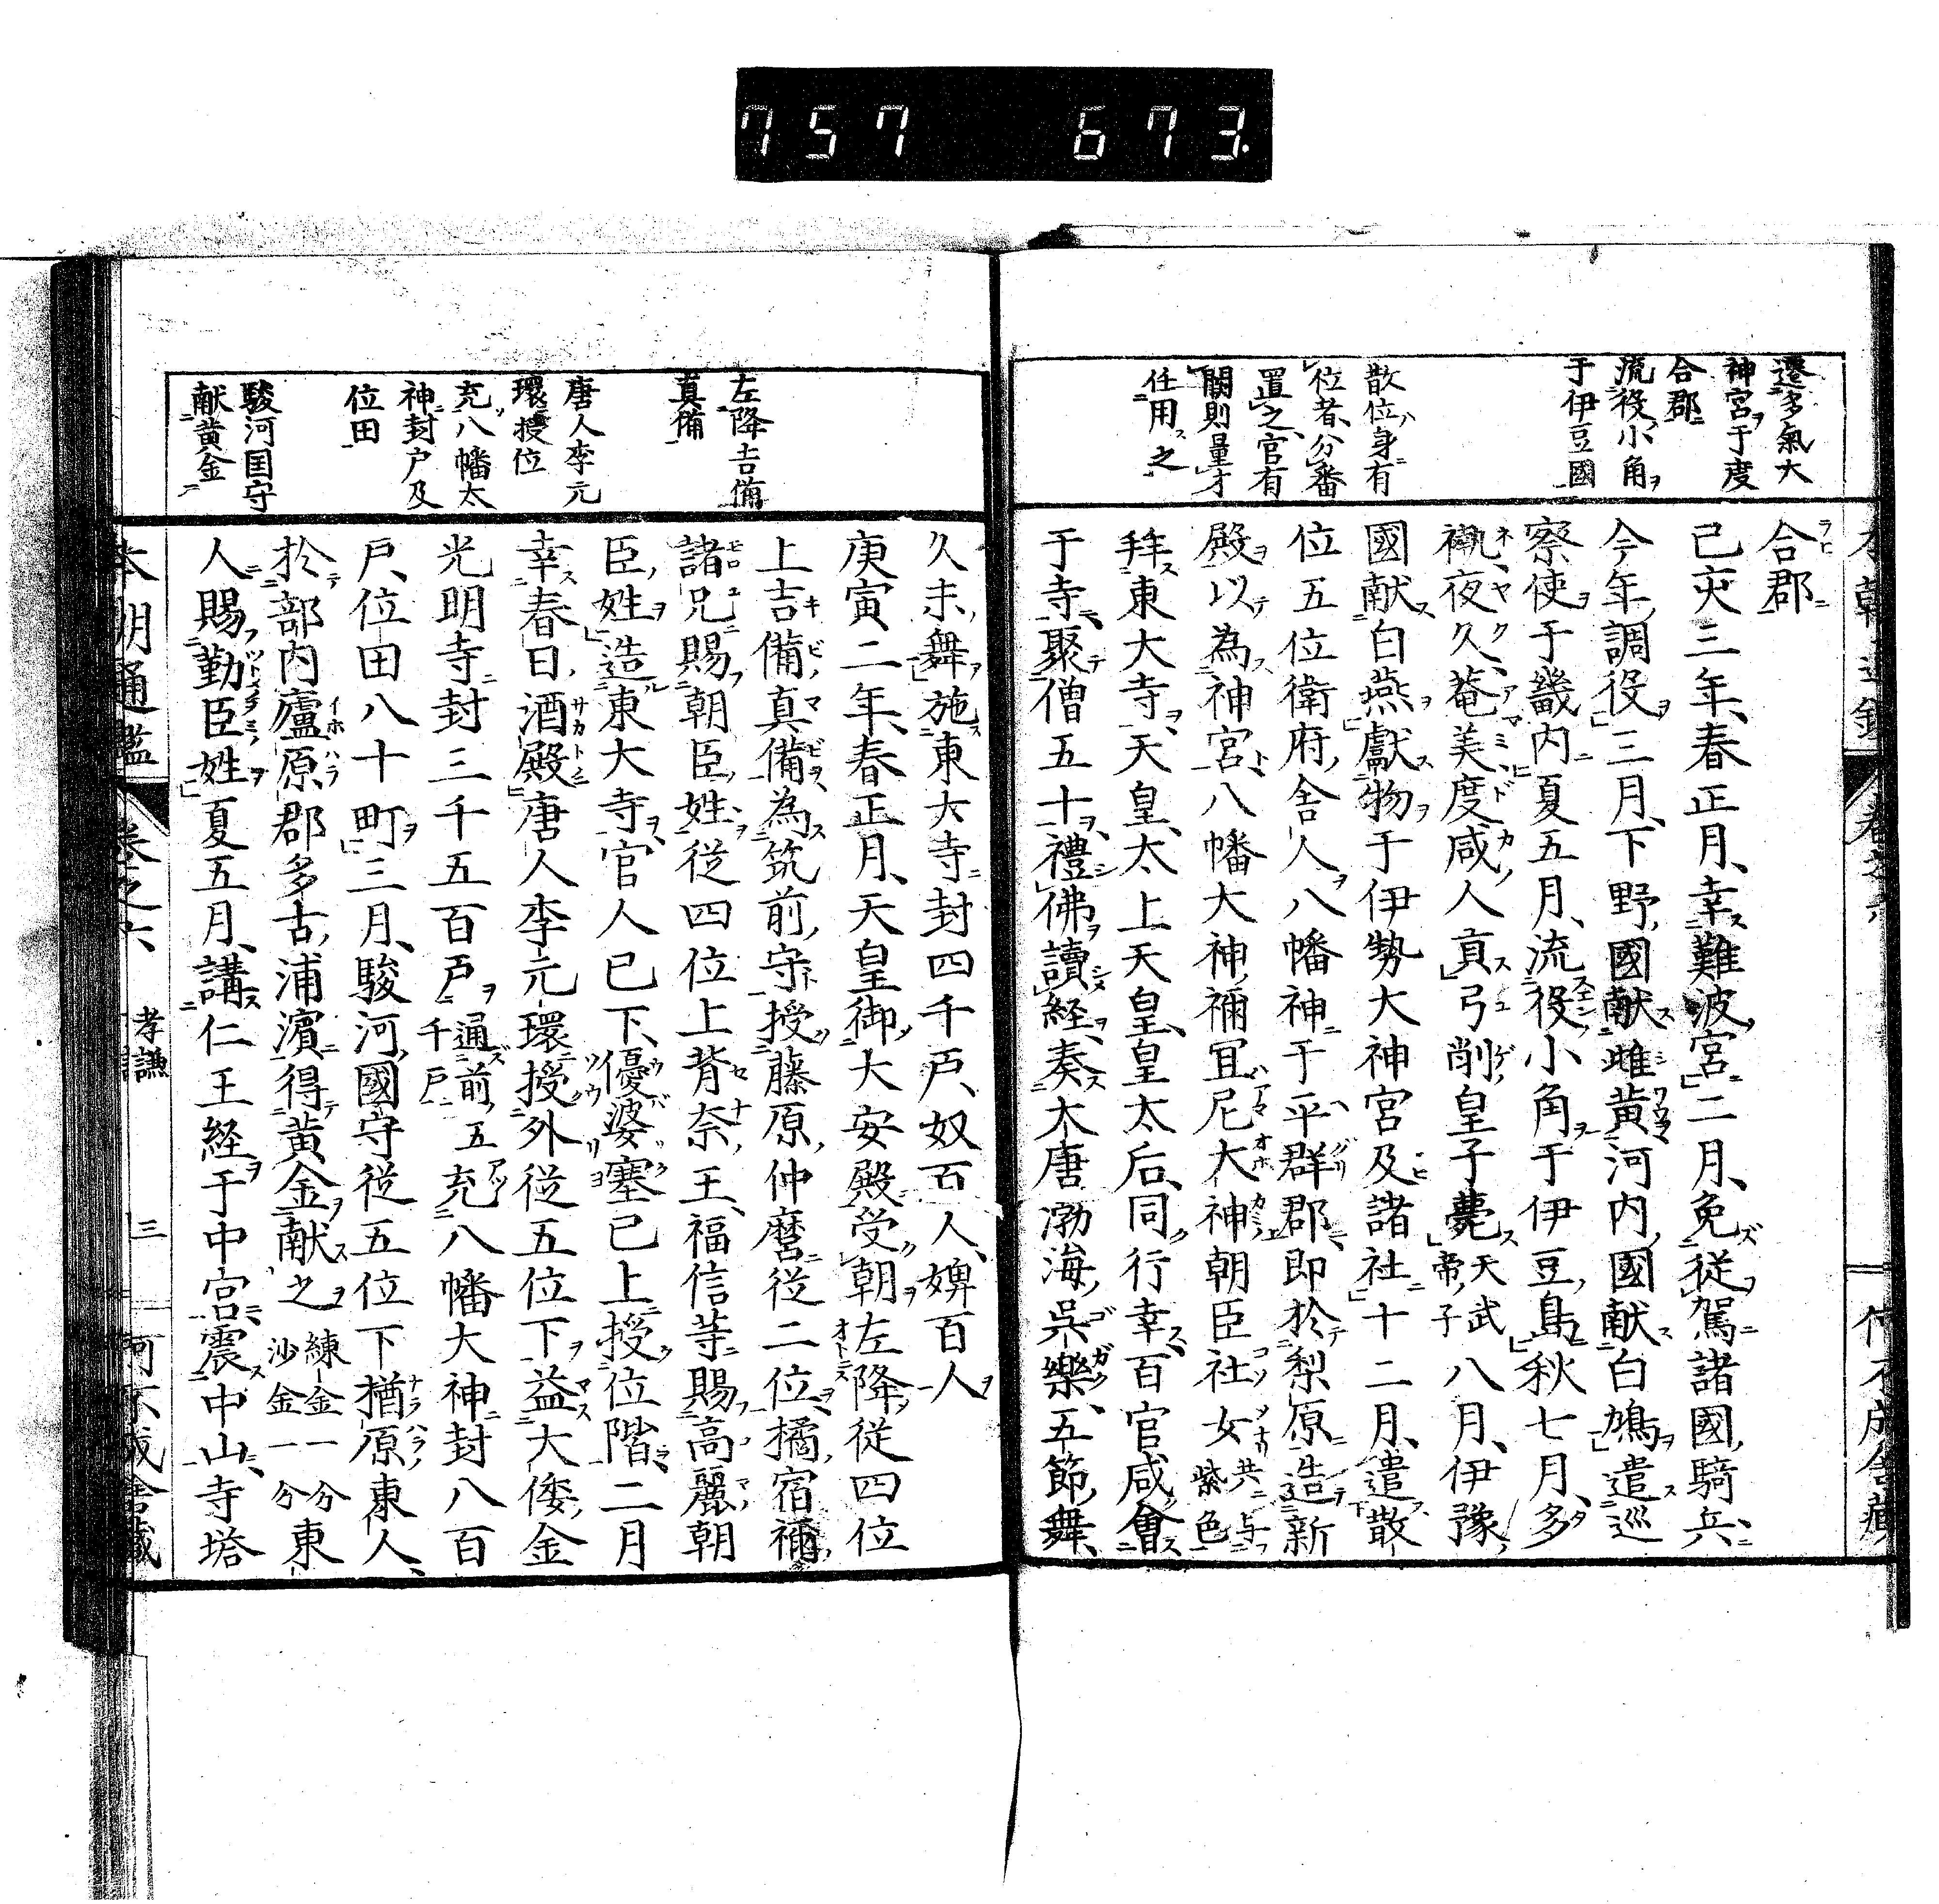 757 673.
遷多氣大
神宮于度
合郡
流役小角
于伊豆國
散位身有
位者分番
置之官有
闕則量才
任用之
合郡
己亥三年、春正月、幸難波宮二月、免從駕諸國騎兵、
今年調役三月、下野國献雌黄河内國献白鳩遣巡
察使于畿内夏五月、流役小角于伊豆島秋七月、多
褹夜久菴美度感人貢弓削皇子薨天武
帝子八月、伊豫
國献白燕献物于伊勢大神宮及諸社十二月、遣散
位五位衛府舎人八幡神于平群郡即於梨原造新
殿以為神宮八幡大神禰冝尼大神朝臣社女共与
紫色
拜東大寺、天皇、太上天皇、皇太后、同行幸百官咸會
于寺聚僧五十禮佛讀経、奏大唐渤海呉樂、五節舞、
左降吉備
真備
唐人李元
環授位
充八幡太
神封戸及
位田
駿河国守
献黄金
久米舞施東大寺封四千戸、奴百人、婢百人
庚寅二年、春正月、天皇御大安殿受朝左降従四位
上吉備真備為筑前守授藤原仲麿従二位橘宿禰
諸兄賜朝臣姓従四位上背奈王、福信等賜高麗朝
臣姓造東大寺官人已下、優婆塞已上授位階二月
幸春日酒殿唐人李元環授外従五位下益大倭金
光明寺封三千五百戸通前五
千戸充八幡大神封八百
戸、位田八十町三月、駿河國守従五位下楢原東人、
於部内廬原郡多古浦濱得黄金献之練金一分
沙金一分東
人賜勤臣姓夏五月、講仁王経于中宮震中山寺塔
卷之六
孝謙
三